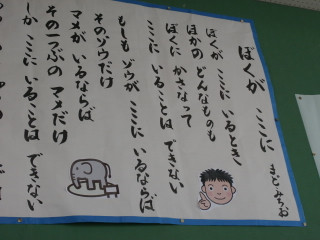 ぼくが ここに
まどみちお
ぼくが ここに いるとき
ほかの どんなものも
ぼくに かさなって
ここに いることは できない
もしも ゾウが ここに いるならば
そのゾウだけ
マメが いるならば
その一つぶの マメだけ
しか ここに いることは できない